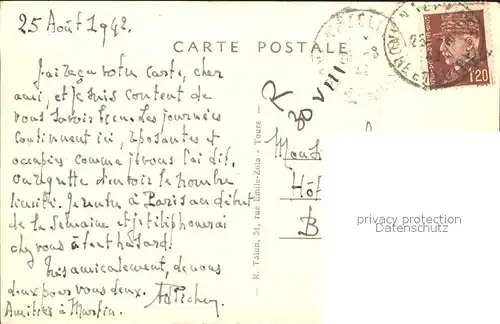 25 Août 1942.
CARTE POSTALE
J'ai reçu votre carte, cher
ami, et je suis content de
vous savoir bien. Les journées
continuent ici, reposantes et
occupées comme je vous l'ai dit.
On regrette d'en voir le nombre
limité. Je rentre à Paris au début
de la semaine et je téléphonerai
chez vous à tout hasard!
Très amicalement, de nous
deux pour vous deux.
Amitiés à
R
30 VIII
R. Talon, 51, rue Emile-Zola - Tours
1,20
privacy protection
Datenschutz